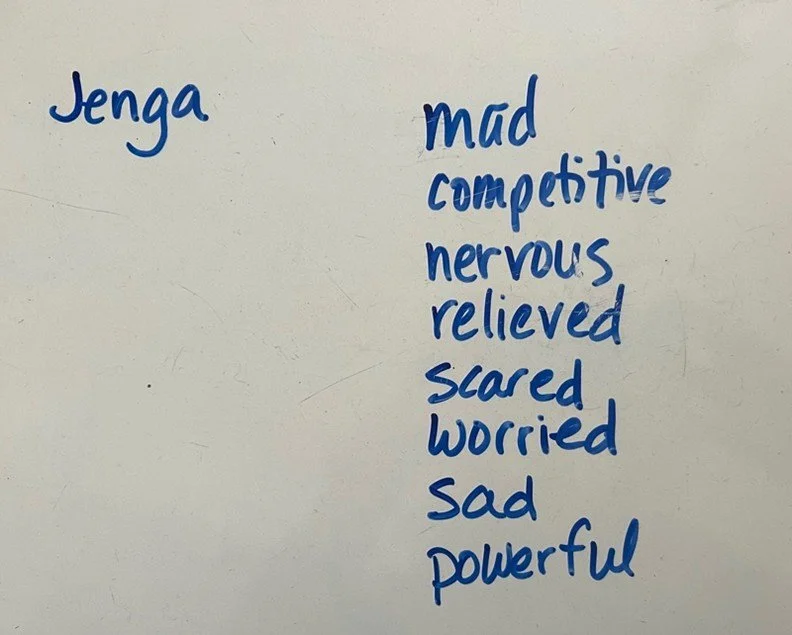 Jenga
mad
competitive
nervous
relieved
scared
worried
sad
powerful